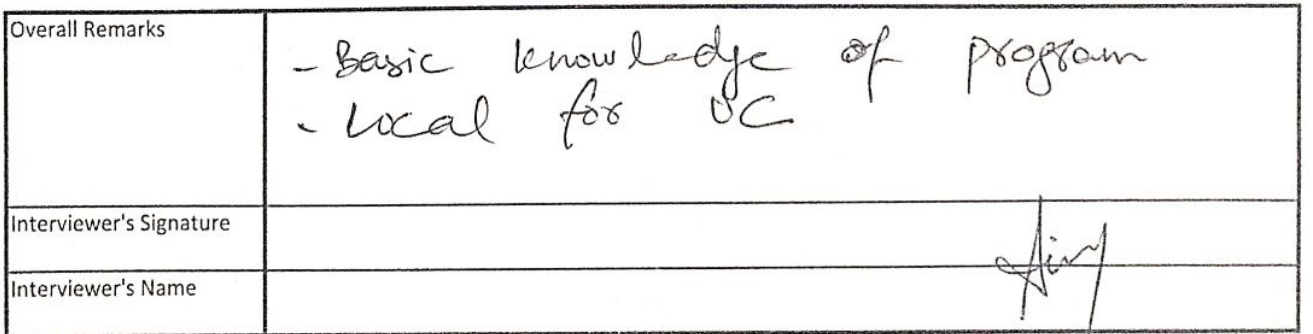 Overall Remarks
- Basic knowledge of program
- Local for UC
Interviewer's Signature
Interviewer's Name